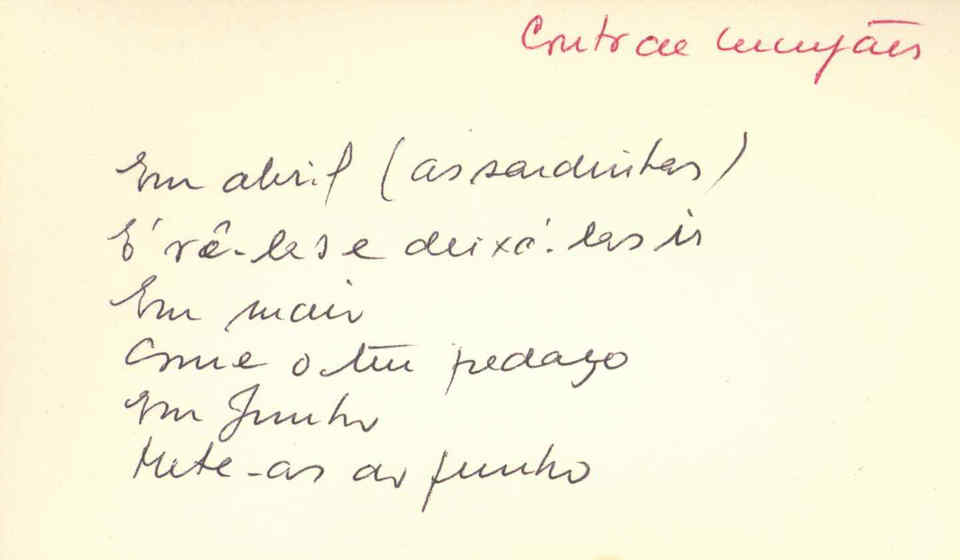 Conto de
Em abril (as sardinhas)
É vê-las e deixá-las ir
Em maio
Come o teu pedaço
Em Junho
Mete-as ao funho